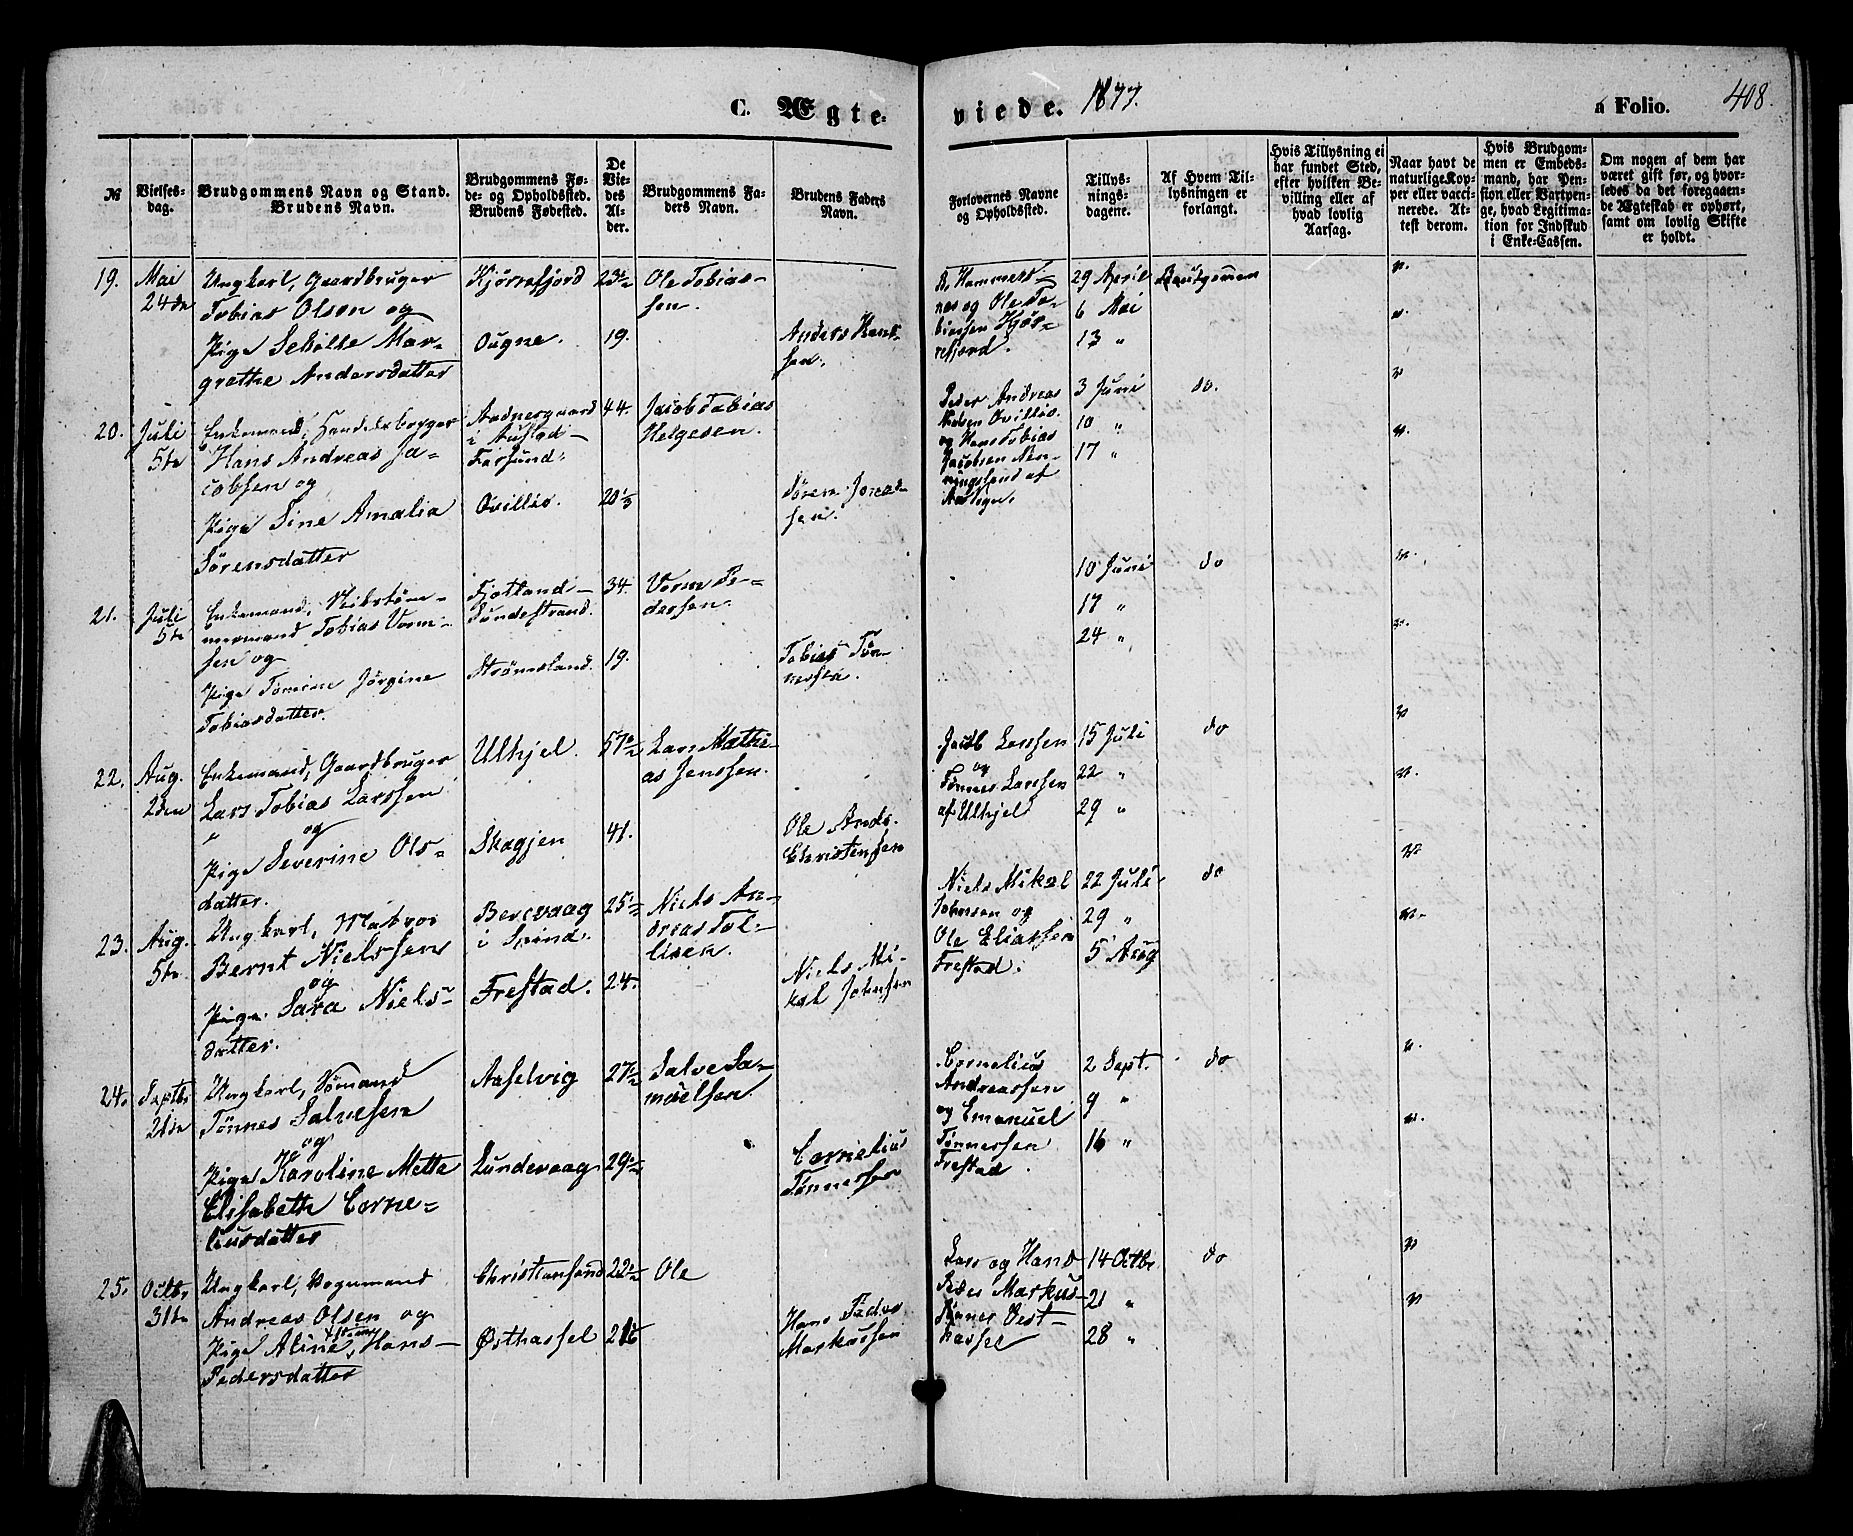 C. Ægte-
viede. 1877.
a Folio. 408.
№
Vielses-
dag.
Brudgommens Navn og Stand.
Brudens Navn.
Brudgommens Fø-
de- og Opholdssted.
Brudens Fødested.
De
Vie-
des
Al-
der.
Brudgommens Fa-
ders Navn.
Brudens Faders
Navn.
Forlovernes Navne
og Opholdssted.
Tillys-
nings-
dagene.
Af Hvem Til-
lysningen er
forlangt.
Hvis Tillysning ei
har fundet Sted,
efter hvilken Be-
villing eller af
hvad lovlig
Aarsag.
Naar havt de
naturlige Kop-
per eller vacci-
nerede. At-
test derom.
Hvis Brudgom-
men er Embeds-
mand, har Pen-
sion eller Vartpen-
ge, hvad Legitima-
tion for Indskud
i Enke-Cassen.
Om nogen af dem har
været gift før, og hvor-
ledes da det foregaaen-
de Ægteskab er ophørt,
samt om lovlig Skifte
er holdt.
19.
Mai
24de
Ungkarl, Gaardbruger
Tobias Olsen og
Pige Severine Mar-
grethe Andersdatter
Kjørrefjord
Ougne.
23½
19.
Ole Tobias-
sen.
Anders Hans-
sen.
nes og Ole To-
biassen Kjør-
refjord.
29 April
6 Mai
13 "
Brudgommen
20.
Juli
5te
Enkemand, Handelsborger
Hans Andreas Ja-
cobsen og
Pige Sine Amalia
Sørensdatter
i Austad
Farsund.
Ovillie.
44.
20⅓
Jacob Tobias
Helgesen.
Søren Jonas-
sen.
Peder Andreas
Ovillie.
og Hans Tobias
Jacobsen
3 Juni
10 "
17 "
do.
21.
Juli
5te
Enkemand, Skibstøm-
mermand Tobias Vorm-
sen og
Pige Tomine Jørgine
Tobiasdatter.
Fjotland
Sundestrand.
Strømsland.
34.
19.
Vorm Pe-
dersen.
Tobias Tøn-
nesen.
10 Juni
17 "
24 "
do
22.
Aug.
2den
Enkemand, Gaardbruger
Lars Tobias Larssen
og
Pige Severine Ols-
datter.
Ulhjel.
Skagjen
57½
41.
Lars Mathi-
as Jenssen.
Ole Ands.
Christensen
Jacob Larssen
og
Tønnes Larssen
af Ulhjel
15 Juli
22 "
29 "
do
23.
Aug.
5te
Ungkarl, Matros
Bernt Nielssen
og
Pige Sara Niels-
datter.
Bervaag
i Spind.
Frestad.
25½
24.
Niels An-
dreas Tol-
lisen.
Niels Mi-
kal Johnsen
Niels Mikal
Johnsen og
Ole Eliassen
Frestad.
22 Juli
29 "
5 Aug
do
24.
Septbr
21de
Ungkarl, Sømand
Tønnes Salvesen
og
Pige Karoline Mette
Elisabeth Corne-
liusdatter
Aaselvig
Lundevaag
27½
29½
Salve Sa-
muelsen.
Cornelius
Tønnessen
Cornelius
Andreassen
og Emanuel
Tønnessen
Frestad
2 Sept.
9 "
16 "
do
25.
Octbr
31te
Ungkarl, Vognmand
Andreas Olsen og
Pige Aline Hans-
Pedersdatter
Christiansand
Østhassel
22½
Ole
Hans Peder
Markussen
Lars og Hans
Peder Markus-
sønner Vest-
hassel
14 Octbr
21 "
28 "
do